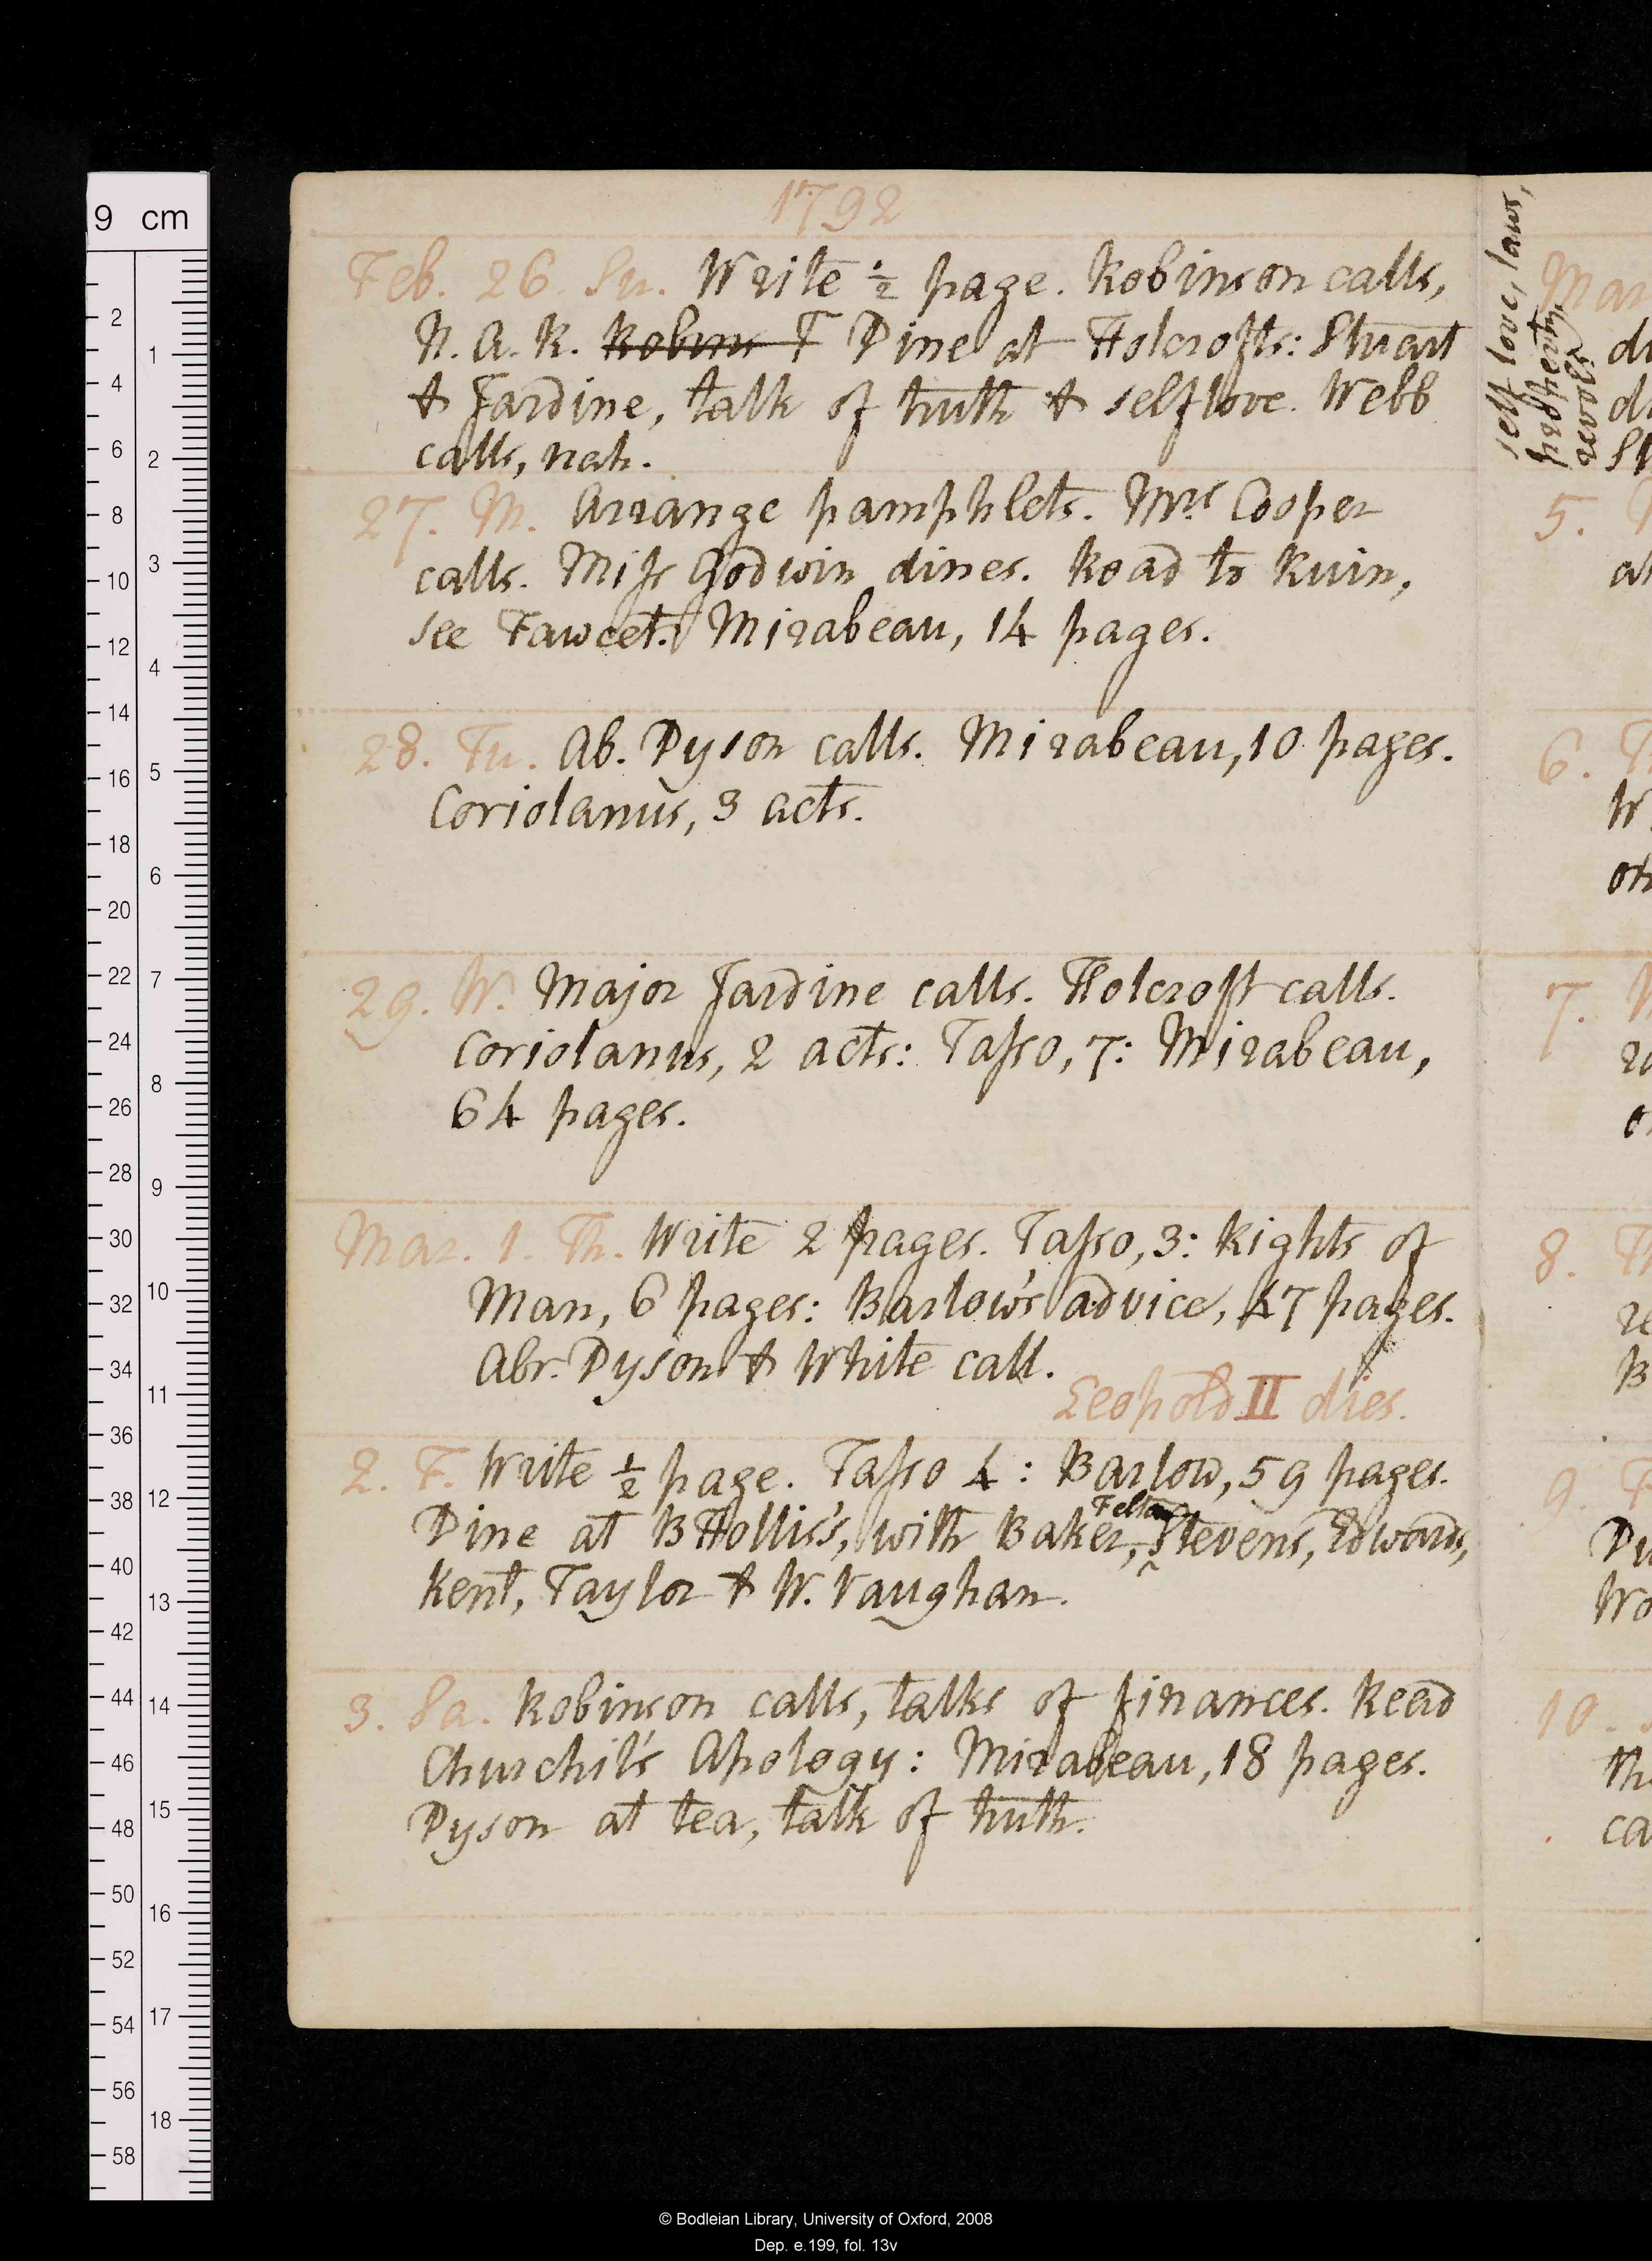 1792
Feb. 26. Su. Write ½ page. Robinson calls,
N. A. R. Robins T Dine at Holcrofts: Stuart
& Jardine, talk of truth & self love. Webb
calls, nah.
27. M. Arrange pamphlets. Mrs Cooper
calls. Miss Godwin dines. Road to Ruin,
see Fawcet. Mirabeau, 14 pages.
28. Tu. Ab. Dyson calls. Mirabeau, 10 pages.
Coriolanus, 3 acts.
29. W. Major Jardine calls. Holcroft calls.
Coriolanus, 2 acts: Tasso, 7: Mirabeau,
64 pages.
Mar. 1. Th. Write 2 pages. Tasso, 3: Rights of
Man, 6 pages: Barlow's advice, 47 pages.
Abr. Dyson & White call.
Leopold II dies.
2. F. Write ½ page. Tasso 4: Barlow, 59 pages.
Felton
Dine at BHollis's, with Baker, Stevens, Edwards,
Kent, Taylor & W. Vaughan.
3. Sa. Robinson calls, talks of finances. Read
Churchil's Apology: Mirabeau, 18 pages.
Dyson at tea, talk of truth.
self love, laws,
property,
Mar
5.
6.
7.
8.
9
10.
9 cm
2
4
6
8
10
12
14
16
18
20
22
24
26
28
30
32
34
36
38
40
42
44
46
48
50
52
54
56
58
1
2
3
4
5
6
7
8
9
10
11
12
13
14
15
16
17
18
© Bodleian Library, University of Oxford, 2008
Dep. e.199, fol. 13v